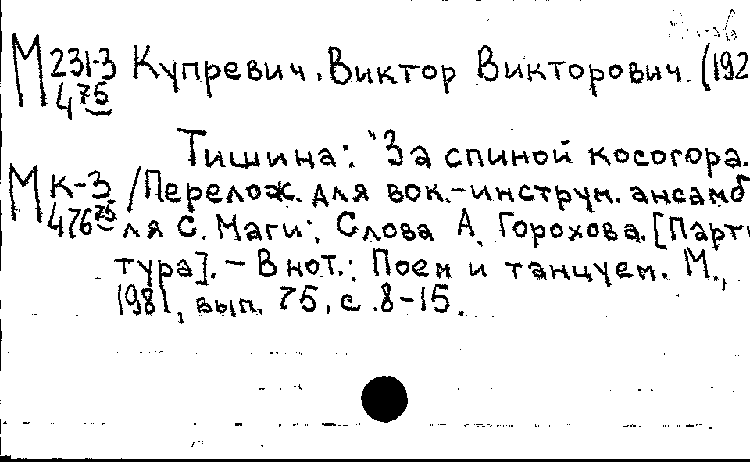 М 231-3 Купревич, Виктор Викторович. (192
475
Тишина: "За спиной косогора.
М К-3 /Перелож. для вок.-инструм. ансамб
476 75 ля С. Маги; Слова А. Горохова. [Парти
тура]. - В нот.: Поем и танцуем. М.,
1981, вып. 75, с. 8-15.